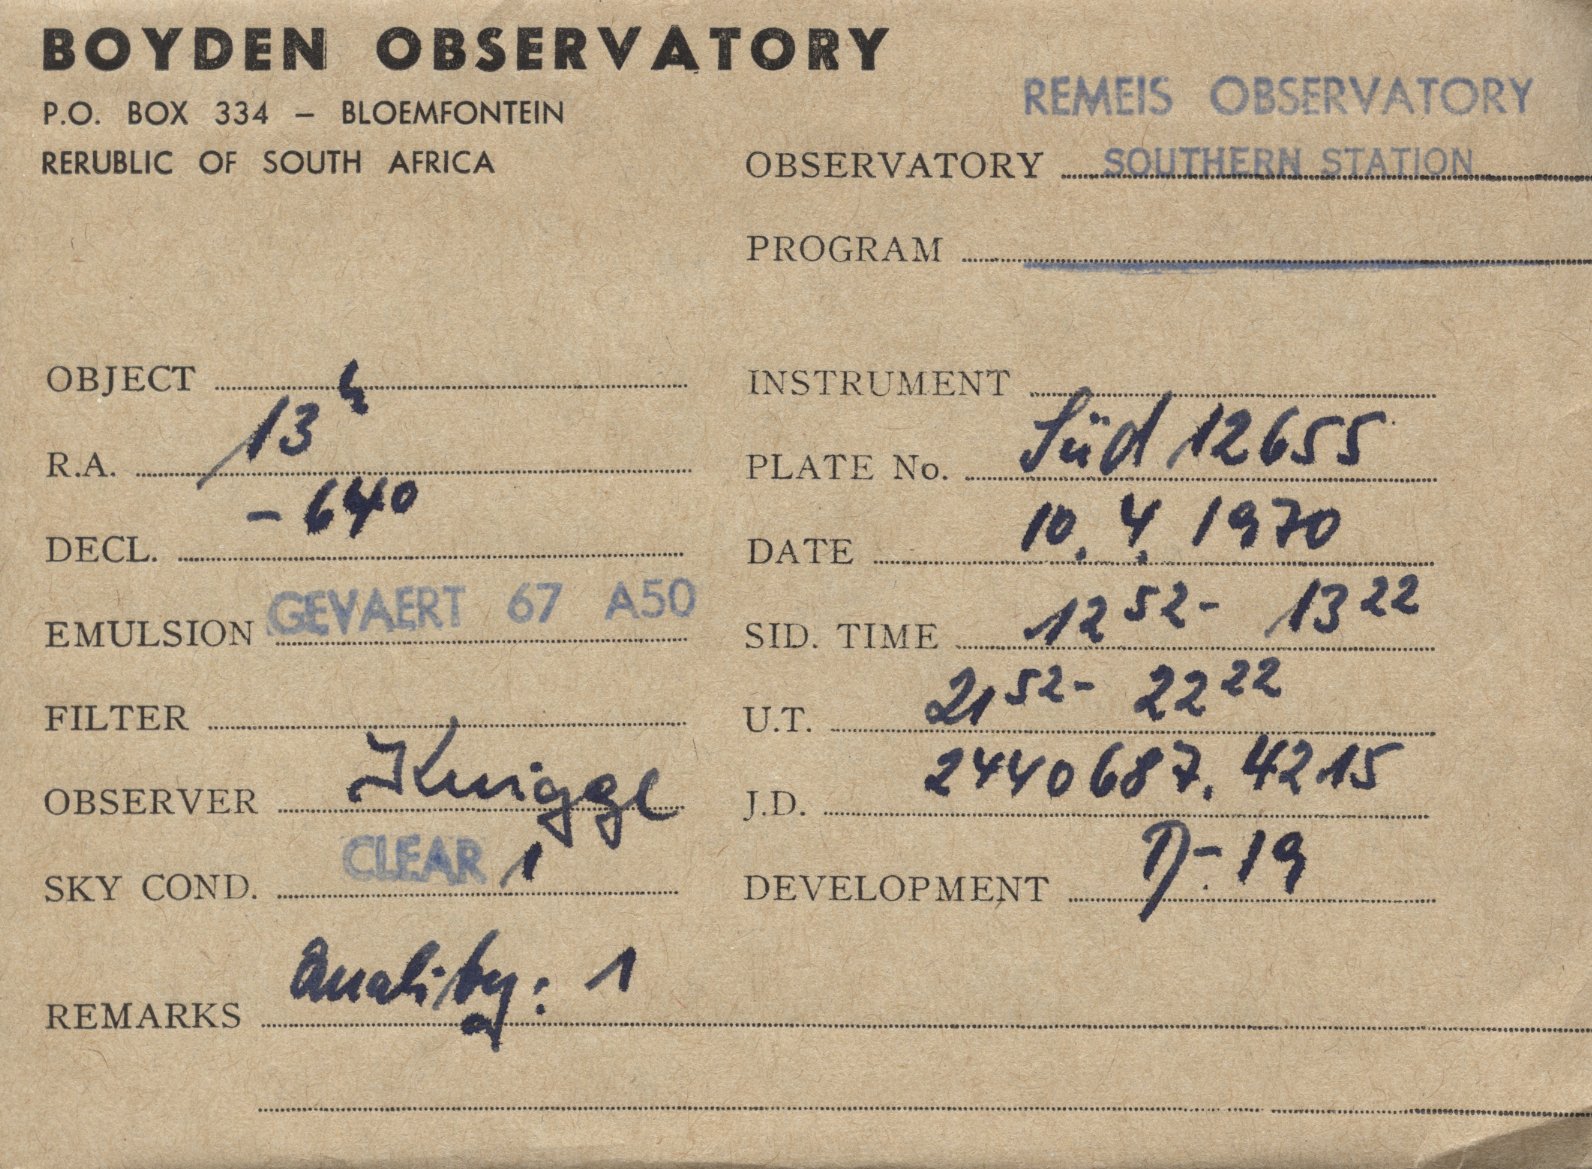 BOYDEN OBSERVATORY
P.O. BOX 334 – BLOEMFONTEIN
RERUBLIC OF SOUTH AFRICA
REMEIS OBSERVATORY
OBSERVATORY SOUTHERN STATION
PROGRAM
OBJECT
R.A. 13h
DECL. -64°
EMULSION GEVAERT 67 A50
FILTER
OBSERVER Knigge
SKY COND. CLEAR 1
INSTRUMENT
PLATE No. Süd 12655
DATE 10.4.1970
SID. TIME 12 52 - 13 22
U.T. 21 52 - 22 22
J.D. 2440687.4215
DEVELOPMENT D-19
REMARKS Quality: 1